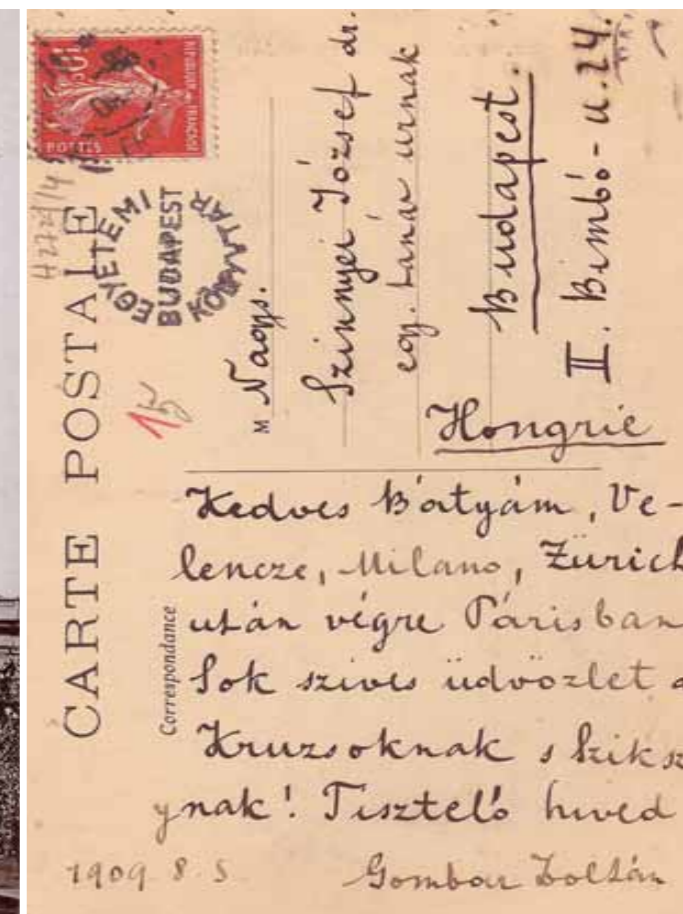 CARTE POSTALE
10
POSTES
EGYETEMI
BUDAPEST
KÖNYVTÁR
M Nagys.
Szinnyei József dr.
egy. tanár urnak
Budapest.
II. Bimbó-u. 24.
Hongrie
Correspondance
Kedves Bátyám, Ve-
lencze, Milano, Zürich
után végre Párisban
Sok szives üdvözlet a
Kruzsoknak s Sziksz
ynak! Tisztelő hived
1909 8. 5
Gombocz Zoltán